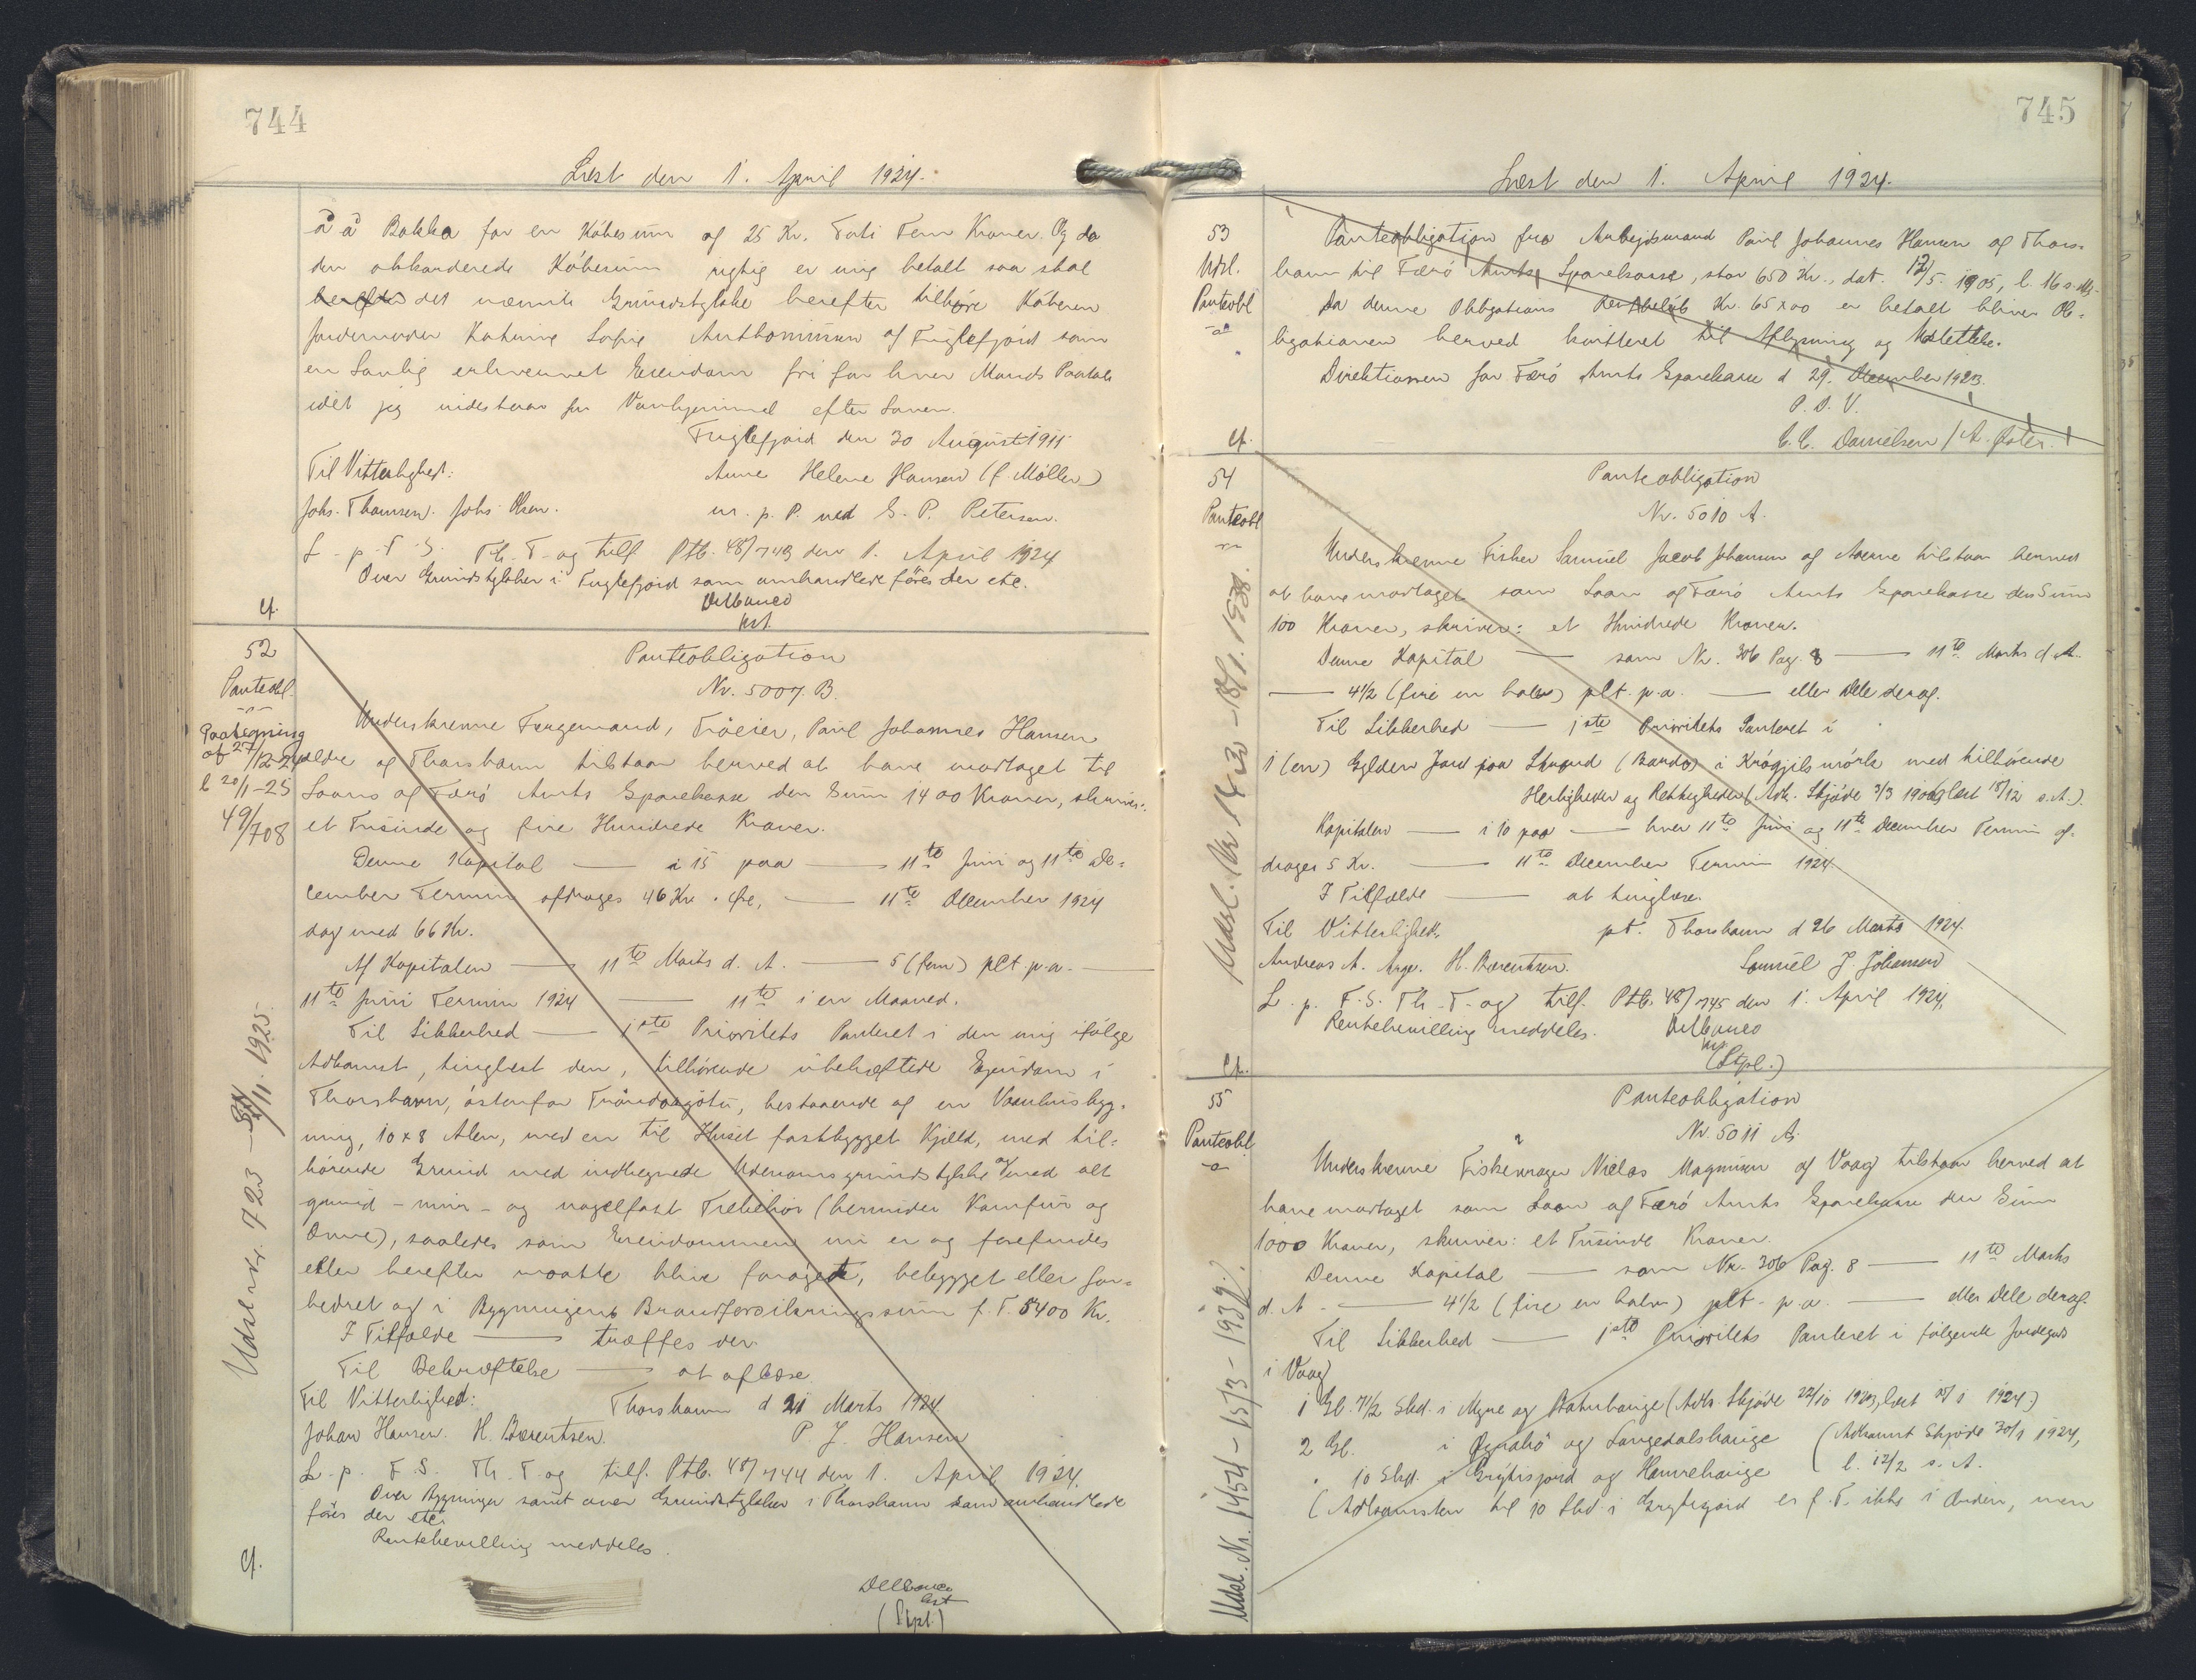 744
Læst den 1. April 1924.
å å Bakka for en Købesum af 25 Kr. Tuti Fem Kroner. Og da
den akkorderede Købesum rigtig er mig betalt saa skal
herefter det nævnte Grundstykke herefter tilhøre Køberen
Jordemoder Katrine Sofie Anthoniussen af Fuglefjord som
en Lovlig erhvervet Eiendom fri for hver Mands Paatale
idet jeg indestaar for Vanhjemmel efter Loven.
Fuglefjord den 30 August 1911
Til Vitterlighed: Anne Helene Hansen (f. Møller)
Johs. Thomsen. Johs Olsen. m. p. P. ved S. P. Petersen.
L. p. F. S. Th. T. og tilf Ptb. 48/743 den 1. April 1924
Over Grundstykker i Fuglefjord som omhandlede føres der etc.
Delbanco
kst
cf.
52
Panteobl.
Panteobligation
Nr. 5007. B.
Paategning
af 27/12-24
l 20/1-25
49/708
Underskrevne Færgemand, Tróeier, Paul Johannes Hansen
ældre af Thorshavn tilstaar herved at have modtaget til
Laans af Færø Amts Sparekasse den Sum 1400 Kroner, skriver:
et Tusinde og fire Hundrede Kroner.
Denne Kapital — i 15 paa — 11te Juni og 11te De=
cember Termin afdrages 46 Kr. . Øre, — 11te December 1924
dog med 66 Kr.
Af Kapitalen — 11te Marts d. A. — 5 (fem) pCt p.a. —
11te Juni Termin 1924 — 11te i en Maaned.
Til Sikkerhed — 1ste Prioritets Panteret i den mig ifølge
Adkomst, tinglæst den , tilhørende ubehæftede Ejendom i
Thorshavn, østenfor Tróndargøtu, bestaaende af en Vaaningsbyg-
ning, 10 x 8 Alen, med en til Huset fastbygget Kjøld, med til=
hørende Grund med indhegnede Udenomsgrundstykke og med alt
grund- mur- og nagelfast Tilbehør (herunder Komfur og
Ovne), saaledes som Eiendommen nu er og forefindes
eller herefter maatte blive forøget, bebygget eller for=
bedret og i Bygningens Brandforsikringssum f. T. 5400 Kr.
I Tilfælde — træffes der.
Til Bekræftelse — at aflæse.
Til Vitterlighed: Thorshavn d 21 Marts 1924.
Johan Hansen. H. Bærentsen. P. J. Hansen
L. p. F. S. Th. T. og tilf. Ptb. 48/744 den 1. April 1924.
Over Bygninger samt over Grundstykker i Thorshavn som omhandlede
føres der etc.
Rentebevilling meddeles.
Delbanco
kst
(Stpl.)
cf.
745
Læst den 1. April 1924.
53
Udsl.
Panteobl
Panteobligation fra Arbejdsmand Paul Johannes Hansen af Thors-
havn til Færø Amts Sparekasse, stor 650 Kr., dat. 12/5 1905, l. 16 s. Md.
Da denne Obligations Restbeløb Kr. 65 x 00 er betalt bliver Ob=
ligationen herved kvitteret til Aflysning og Udslettelse.
Direktionen for Færø Amts Sparekasse d 29. December 1923.
P. D. V.
C. C. Danielsen / A. Øster.
cf.
54
Panteobl
Panteobligation
Nr. 5010 A.
Underskrevne Fisker Samuel Jacob Johansen af tilstaar herved
at have modtaget som Laan af Færø Amts Sparekasse den Sum
100 Kroner, skriver: et Hundrede Kroner.
Denne Kapital — som Nr. 306 Pag. 8 — 11te Marts d. A.
— 4 1/2 (fire en halv) pCt. p.a. — eller Dele deraf.
Til Sikkerhed — 1ste Prioritets Panteret i
1 (en) Gylden Jord paa (Bardo) i med tilhørende
Herligheder og Rettigheder (Adk. Skjøde 3/3 1906 læst 18/12 s. A.).
Kapitalen — i 10 paa — hver 11te Juni og 11te December Termin af-
drages 5 Kr. — 11te December Termin 1924.
I Tilfælde — at tinglæse.
Til Vitterlighed. pt. Thorshavn d 26 Marts 1924.
Andreas A. Arge. H. Bærentsen. Samuel J. Johansen
L. p. F. S. Th. T. og tilf. Ptb. 48/745 den 1. April 1924.
Rentebevilling meddeles. Delbanco
kst
(Stpl.)
cf.
55
Panteobl
Panteobligation
Nr. 5011 A.
Underskrevne Niclas Magnussen af Vaag tilstaar herved at
have modtaget som Laan af Færø Amts Sparekasse den Sum
1000 Kroner, skriver: et Tusinde Kroner.
Denne Kapital — som Nr. 306 Pag. 8 — 11te Marts
d. A. — 4 1/2 (fire en halv) pCt. p.a. — eller Dele deraf.
Til Sikkerhed — 1ste Prioritets Panteret i følgende Jordegods
i Vaag
1 Gl. 7 1/2 Skd. i Myre og (Adk. Skjøde 22/10 1923, læst 1924.)
2 Gl. i og Langedalshauge (Adkomst Skjøde 30/1 1924,
. 10 Skd. i og l. 12/2 s. A.
(Adkomsten til 10 Skd. i er f. T. ikke i Orden, men
Udsl. Nr. 723 – 1925.
Udsl. Nr 1423 – 18/1. 1938.
Udsl. Nr. 1454 – 15/3 – 1939.